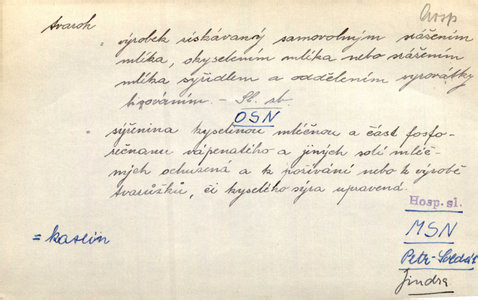 Hosp
tvaroh
výrobek získávaný samovolným srážením
mléka, okyselením mléka nebo srážením
mléka syřidlem a oddělením syrovátky
lisováním. – Sl. st.
OSN
sýřenina kyselinou mléčnou a část fosfo-
rečnanu vápenatého a jiných solí mléč-
ných ochuzená a k požívání nebo k výrobě
tvarůžků, či kyselého sýra upravená.
Hosp. sl.
= kasein
MSN
Petr-
Jindra